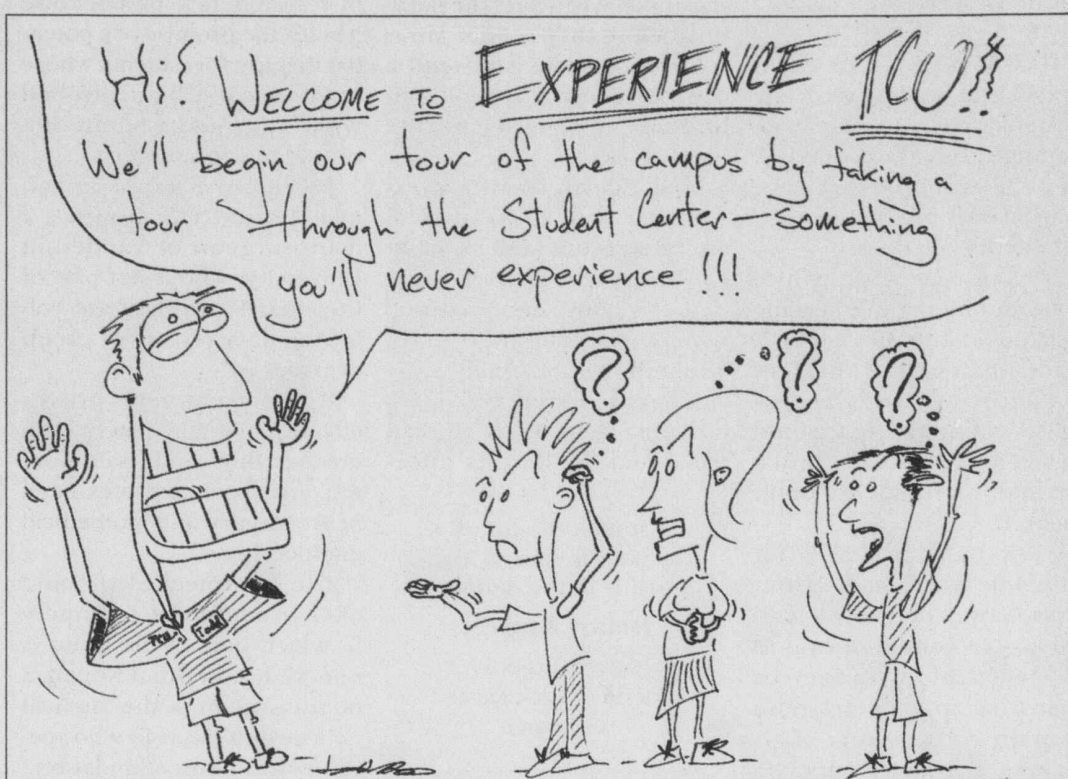 Hi! WELCOME TO EXPERIENCE TCU!!
We'll begin our tour of the campus by taking a
tour — through the Student Center — something
you'll never experience!!!
?
?
?
TCU
Todd